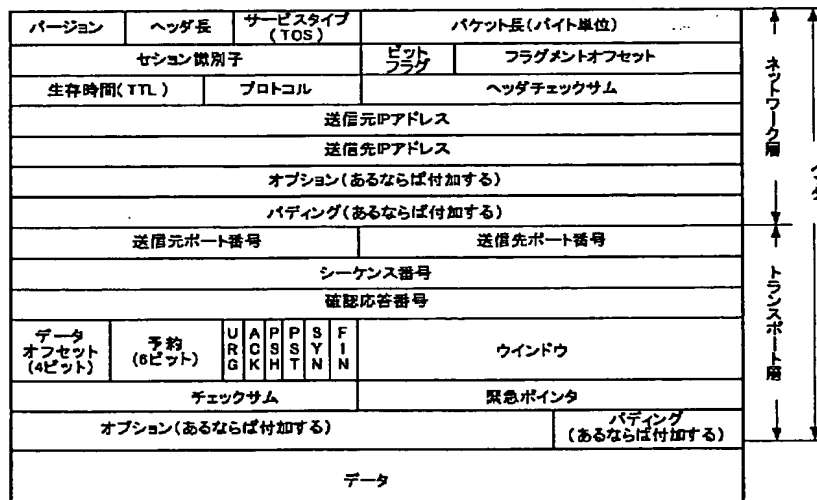 バージョン
ヘッダ長
サービスタイプ
(TOS)
パケット長(バイト単位)
セション識別子
ビット
フラグ
フラグメントオフセット
生存時間(TTL)
プロトコル
ヘッダチェックサム
送信元IPアドレス
送信先IPアドレス
オプション(あるならば付加する)
パディング(あるならば付加する)
送信元ポート番号
送信先ポート番号
シーケンス番号
確認応答番号
データ
オフセット
(4ビット)
予約
(6ビット)
URG
ACK
PSH
PST
SYN
FIN
ウインドウ
チェックサム
緊急ポインタ
オプション(あるならば付加する)
パディング
(あるならば付加する)
データ
ネットワーク層
トランスポート層
ヘッダ